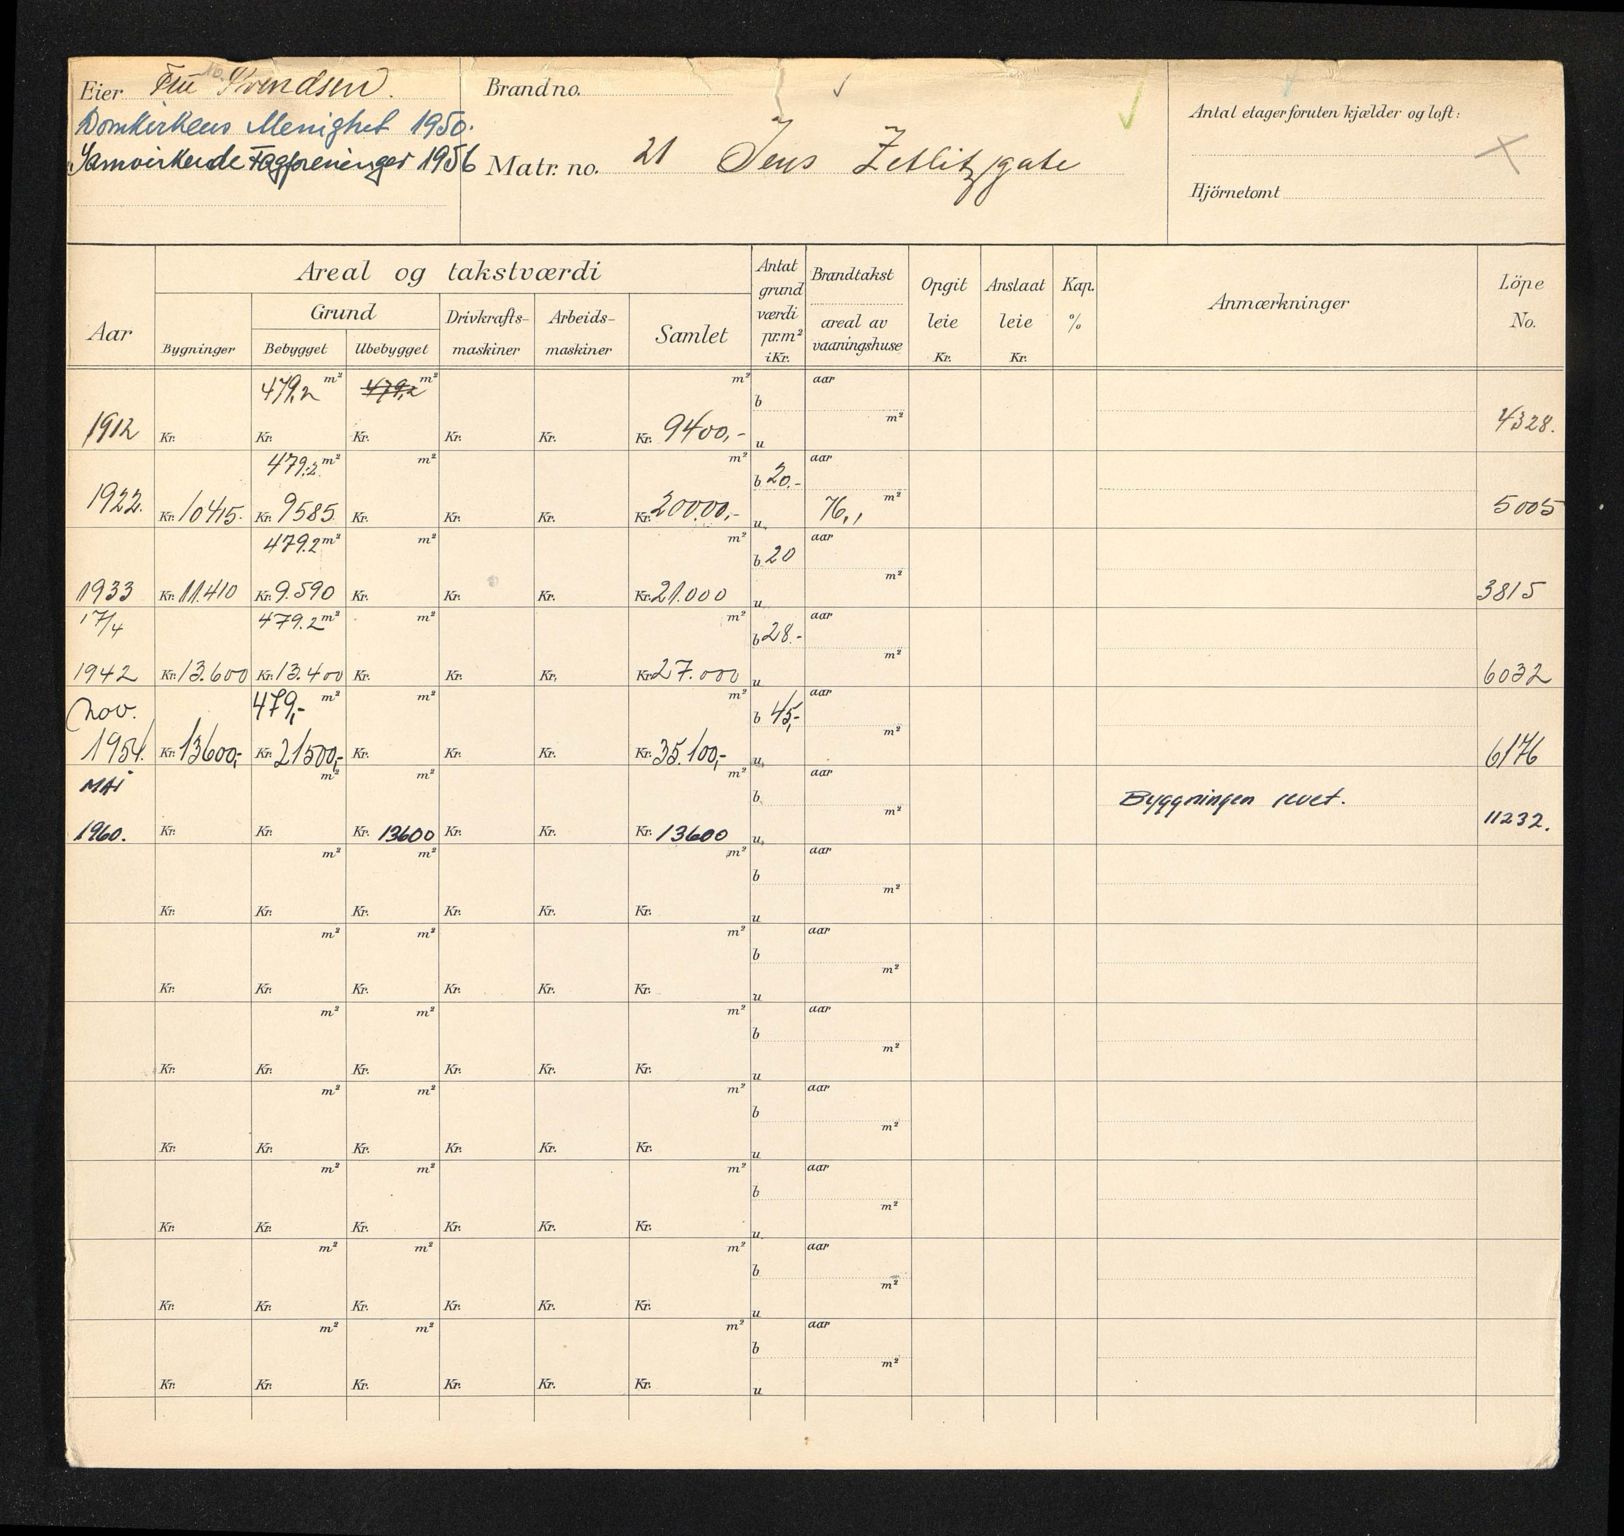 Eier Fru Svendsen.
Domkirkens Menighet 1950.
Samvirkende Fagforeninger 1956
Brand no.
Matr. no. 21 Jens Zetlitzgate
Antal etager foruten kjælder og loft:
Hjörnetomt
Aar
Areal og takstværdi
Bygninger
Grund
Bebygget Ubebygget
Drivkrafts-
maskiner
Arbeids-
maskiner
Samlet
Antat
grund
værdi
pr.m²
i Kr.
Brandtakst
areal av
vaaningshuse
Opgit
leie
Kr.
Anslaat
leie
Kr.
Kap.
%
Anmærkninger
Löpe
No.
479,2 m² 479,2 m² m² b aar
1912 Kr. Kr. Kr. Kr. Kr. Kr. 9400,- u m² 4328.
479.2 m² m² m² b 20.- aar
1922. Kr. 10415. Kr. 9585 Kr. Kr. Kr. Kr. 20000,- u 76,, m² 5005
479.2 m² m² m² b 20 aar
1933 Kr. 11.410 Kr. 9.590 Kr. Kr. Kr. Kr. 21.000 u m² 3815
17/4 479.2 m² m² m² b 28.- aar
1942 Kr. 13.600 Kr. 13.400 Kr. Kr. Kr. Kr. 27.000 u m² 6032
nov. 479,- m² m² m² b 45,- aar
1954. Kr. 13600,- Kr. 21500,- Kr. Kr. Kr. Kr. 35.100,- u m² 6176
MAI m² m² m² b aar Byggningen revet.
1960. Kr. Kr. Kr. 13600 Kr. Kr. Kr. 13600 u m² 11232.
m² m² m² b aar
Kr. Kr. Kr. Kr. Kr. Kr. u m²
m² m² m² b aar
Kr. Kr. Kr. Kr. Kr. Kr. u m²
m² m² m² b aar
Kr. Kr. Kr. Kr. Kr. Kr. u m²
m² m² m² b aar
Kr. Kr. Kr. Kr. Kr. Kr. u m²
m² m² m² b aar
Kr. Kr. Kr. Kr. Kr. Kr. u m²
m² m² m² b aar
Kr. Kr. Kr. Kr. Kr. Kr. u m²
m² m² m² b aar
Kr. Kr. Kr. Kr. Kr. Kr. u m²